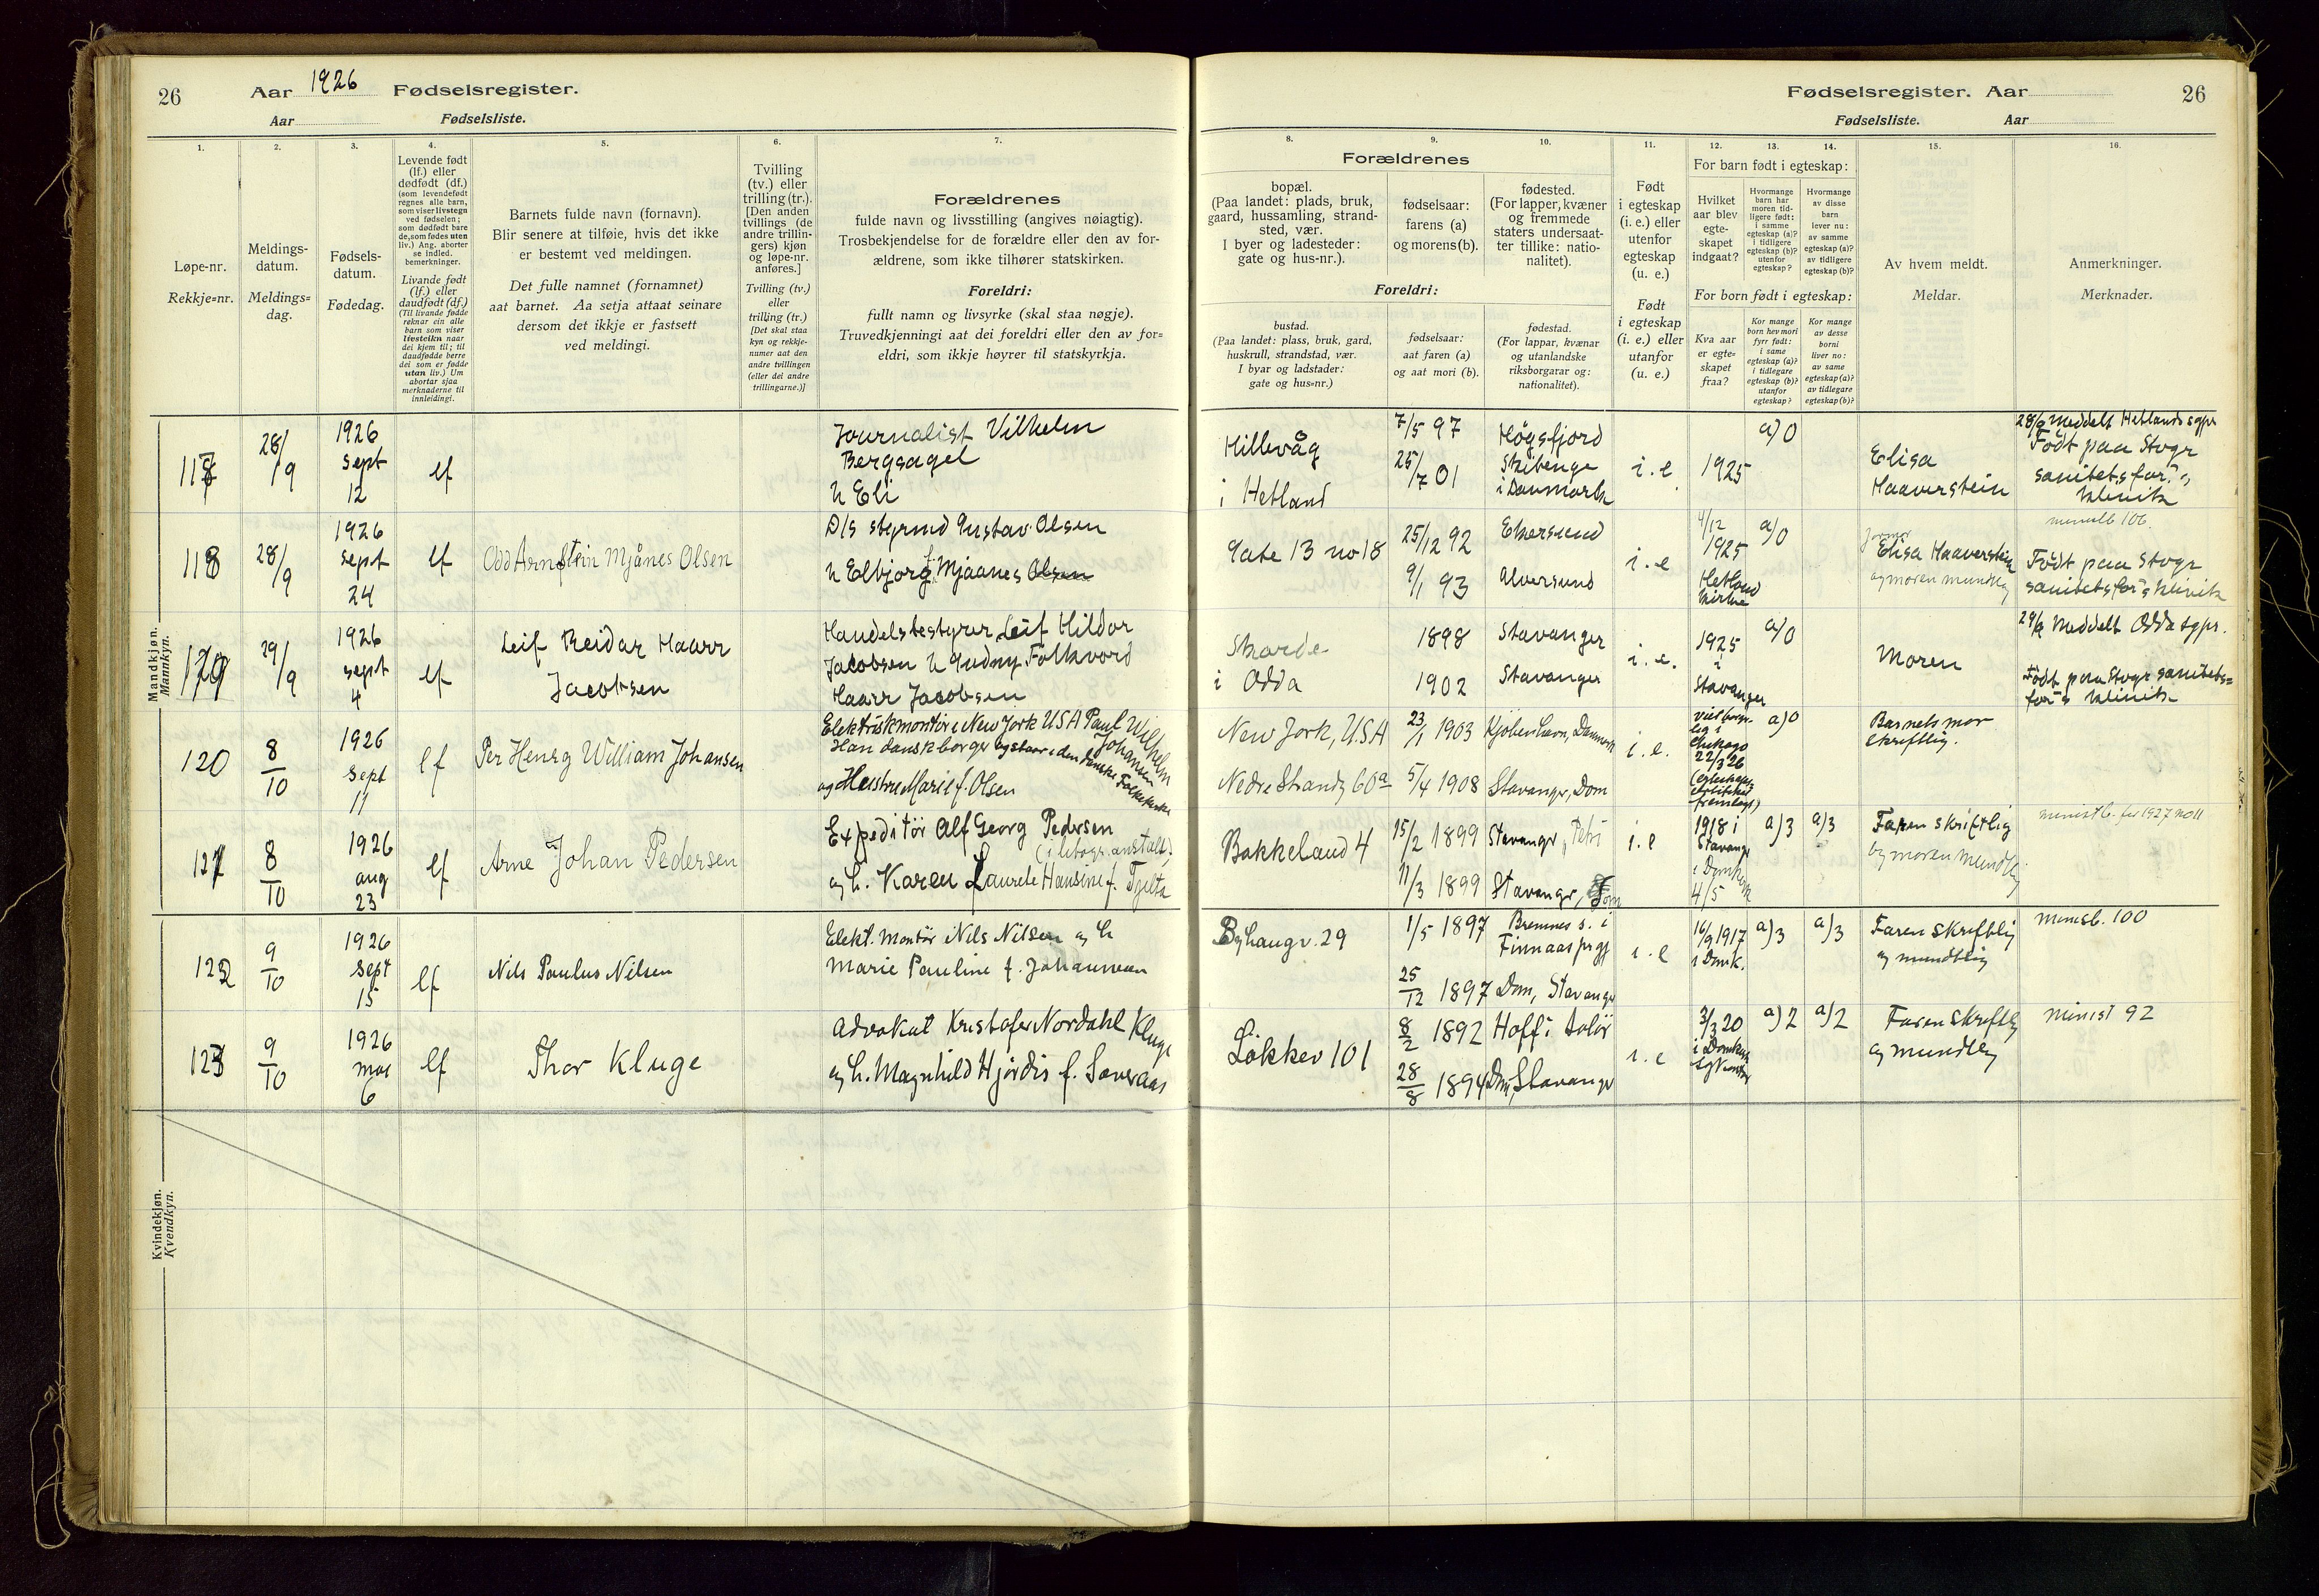 26
Aar 1926 Fødselsregister.
Aar Fødselsliste.
1.
2.
3.
4.
5.
6.
7.
Løpe-nr.
Rekkje=nr.
Meldings-
datum.
Meldings=
dag.
Fødsels-
datum.
Fødedag.
Levende født
(lf.) eller
dødfødt (df.)
(som levendefødt
regnes alle barn,
som viser livstegn
ved fødselen;
som dødfødt bare
de, som fødes uten
liv.) Ang. aborter
se indled.
bemerkninger.
Livande født
(lf.) eller
daudfødt (df.)
(Til livande fødde
reknar ein alle
born som viser
livsteikn naar
dei kjem til; til
daudfødde berre
dei som er fødde
utan liv.) Um
abortar sjaa
merknaderne til
innleidingi.
Barnets fulde navn (fornavn).
Blir senere at tilføie, hvis det ikke
er bestemt ved meldingen.
Det fulle namnet (fornamnet)
aat barnet. Aa setja attaat seinare
dersom det ikkje er fastsett
ved meldingi.
Tvilling
(tv.) eller
trilling (tr.).
[Den anden
tvillings (de
andre trillin-
gers) kjøn
og løpe-nr.
anføres.]
Tvilling (tv.)
eller
trilling (tr.)
[Det skal staa
kyn og rekkje-
numer aat den
andre tvillingen
(eller dei andre
trillingarne.)]
Forældrenes
fulde navn og livsstilling (angives nøiagtig).
Trosbekjendelse for de forældre eller den av for-
ældrene, som ikke tilhører statskirken.
Foreldri:
fullt namn og livsyrke (skal staa nøgje).
Truvedkjenningi aat dei foreldri eller den av for=
eldri, som ikkje høyrer til statskyrkja.
Mandkjøn.
Mannkyn.
117
28/9
1926
sept
12
lf
Journalist Vilhelm
Bergsagel
h Eli
118
28/9
1926
sept
24
lf
Odd Arnstein Mjånes Olsen
D/S styrmd Gustav Olsen
h Elbjorg f. Mjaanes Olsen
119
29/9
1926
sept
4
lf
Leif Reidar Haarr
Jacobsen
Handelsbestyrer Leif Hildor
Jacobsen h Gudny Folkvord
Haarr Jacobsen
120
8/10
1926
Sept
11
lf
Per Henry William Johansen
Elektriskmontør i New Jork USA Paul Wilhelm
Johansen
Han dansk borger og staar i den danske Folkekirke
og Marie f. Olsen
121
8/10
1926
aug
23
lf
Arne Johan Pedersen
Expeditør Alf Georg Pedersen
(i litogr. anstalt),
og h. Karen Laurele Hansine f. Tjelta
122
9/10
1926
Sept
15
lf
Nils Paulus Nilsen
Elekt. montør Nils Nilsen og h
Marie Pauline f. Johannesen
123
9/10
1926
mai
6
lf
Thor Kluge
Advokat Kristofer Nordahl Kluge
og h. Magnhild Hjørdis f. Søveraas
Kvindekjøn.
Kvendkyn.
Fødselsregister. Aar
26
Fødselsliste. Aar
8.
9.
10.
11.
12.
13.
14.
15.
16.
Forældrenes
bopæl.
(Paa landet: plads, bruk,
gaard, hussamling, strand-
sted, vær.
I byer og ladesteder:
gate og hus-nr.).
fødselsaar:
farens (a)
og morens (b).
fødested.
(For lapper, kvæner
og fremmede
staters undersaat-
ter tillike: natio-
nalitet).
Foreldri:
bustad.
(Paa landet: plass, bruk, gard,
huskrull, strandstad, vær.
I byar og ladstader:
gate og hus=nr.)
fødselsaar:
aat faren (a)
og aat mori (b).
fødestad.
(For lappar, kvænar
og utanlandske
riksborgarar og:
nationalitet).
Født
i egteskap
(i. e.) eller
utenfor
egteskap
(u. e.)
Født
i egteskap
(i. e.) eller
utanfor
(u. e.)
For barn født i egteskap:
Hvilket
aar blev
egte-
skapet
indgaat?
Hvormange
barn har
moren tid-
ligere født:
i samme
egteskap (a)?
i tidligere
egteskap (b)?
utenfor
egteskap?
Hvormange
av disse
barn
lever nu:
av samme
egteskap (a)?
av tidligere
egteskap (b)?
For born født i egteskap:
Kva aar
er egte-
skapet
fraa?
Kor mange
born hev mori
fyrr født:
i same
egteskap (a)?
i tidlegare
egteskap (b)?
utanfor
egteskap?
Kor mange
av desse
borni
liver no:
av same
egteskap (a)?
av tidlegare
egteskap (b)?
Av hvem meldt.
Meldar.
Anmerkninger.
Merknader.
Hillevåg
i Hetland
7/5 97
25/7 01
Høgsfjord
i Danmark
i. e.
1925
a) 0
Elisa
Haaverstein
28/9 Meddelt Hetlands sgpr
Født paa Stvgr
sanitetsfor.s
klinik
Gate 13 no 18
25/12 92
9/1 93
Ekersund
Alversund
i. e
4/12
1925
Hetland
kirke
a) 0
Elisa Haaverstein
og moren mundtlig
ministb 106.
Født paa Stvgr
sanitetsfor's klinik
Skarde
i Odda
1898
1902
Stavanger
Stavanger
i. e.
1925
i
Stavanger
a) 0
Moren
29/9 Meddelt Odda sgpr.
Født paa Stvgr sanitets=
for's klinik
New Jork, USA
Nedre Strandg 60a
23/1 1903
5/4 1908
Kjøbenhavn, Danmark
Stavanger, Dom
i. e.
viet borger-
lig i
Chikago
22/3 26
fremlagt)
a) 0
Barnets mor
skriftlig.
Bakkeland 4
15/2 1899
11/3 1899
Stavanger, Petri
Stavanger, Dom
i. e
1918 i
Stavanger
i Domkirk
4/5
a) 3
a) 3
Faren skriftlig
og moren mundtlig
ministb. for 1927 no 11
Byhaugv. 29
1/5 1897
25/12 1897
Bremnes s. i
Finnaas prgj
Dom, Stavanger
i. e
16/9 1917
i Domk.
a) 3
a) 3
Faren skriftlig
og mundtlig
minisb. 100
Løkkev 101
8/2 1892
28/8 1894
Hoff i Solør
Dom, Stavanger
i. e
3/3 20
a) 2
a) 2
Faren skriftlig
og mundtlig
minist 92